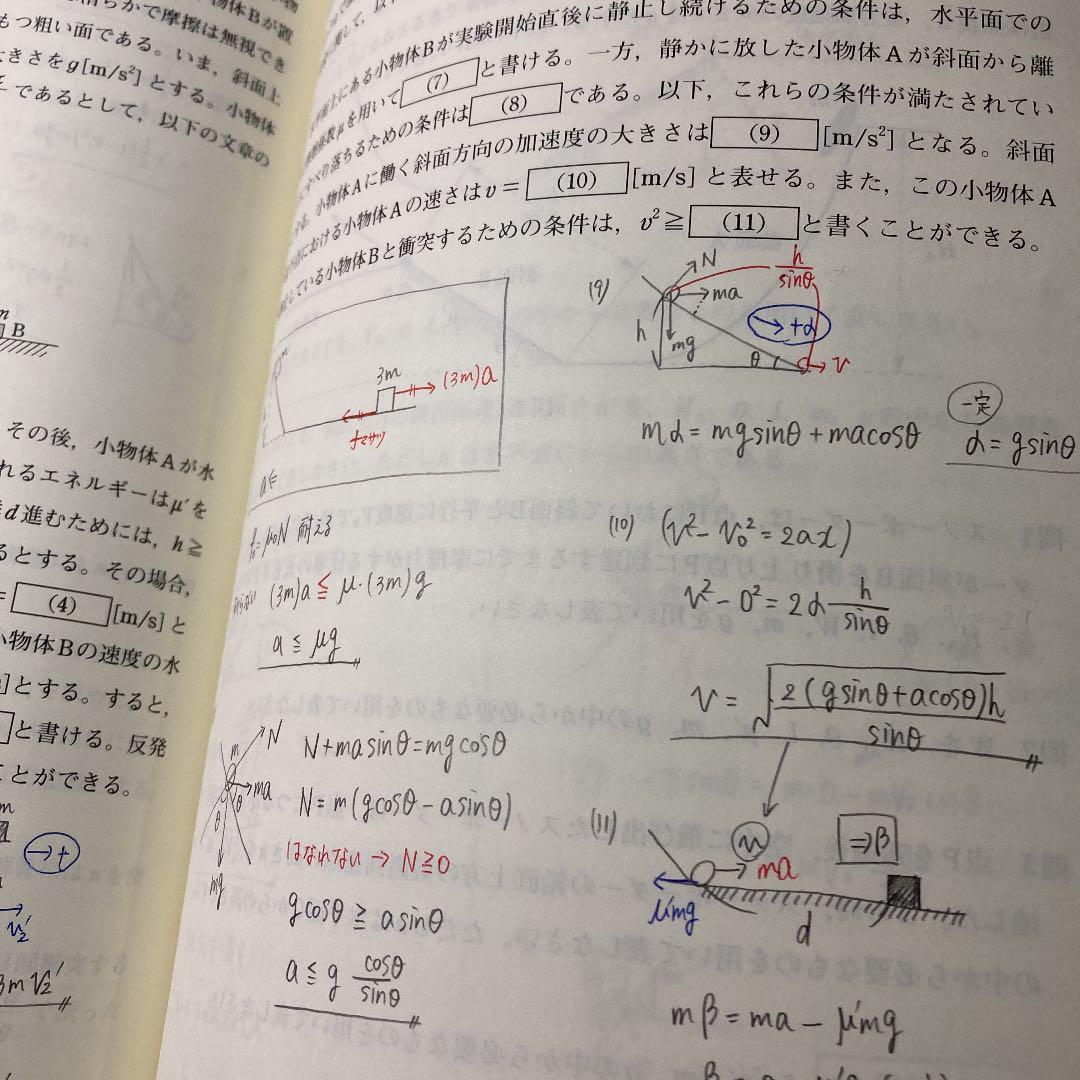 物体Bが置
らかで摩擦は無視でき
もつ粗い面である。いま，斜面上
大きさをg[m/s²]とする。小物体
であるとして，以下の文章の
B
その後，小物体Aが水
れるエネルギーはμ'を
d進むためには，h≧
るとする。その場合，
(4) [m/s]と
小物体Bの速度の水
]とする。すると，
と書ける。反発
ことができる。
m
→+
v₂'
3mv₂'
上にある小物体Bが実験開始直後に静止し続けるための条件は，水平面での
係数μを用いて (7) と書ける。一方，静かに放した小物体Aが斜面から離
にすべり落ちるための条件は (8) である。以下，これらの条件が満たされてい
る。小物体Aに働く斜面方向の加速度の大きさは (9) [m/s²]となる。斜面
における小物体Aの速さはv＝ (10) [m/s]と表せる。また，この小物体A
している小物体Bと衝突するための条件は，v²≧ (11) と書くことができる。
3m
(3m)a
fマサツ
a⇐
f₀=μ₀N 耐える
(3m)a ≦ μ・(3m)g
a ≦ μg
m
N
ma
θ
θ
mg
N+masinθ=mgcosθ
N=m(gcosθ-asinθ)
はなれない → N≧0
gcosθ ≧ asinθ
a ≦ g cosθ/sinθ
(9)
N
h/sinθ
ma
h
mg
→+α
θ
v
mα=mgsinθ+macosθ
一定
α=gsinθ
(10) (v²-v₀²=2ax)
v²-0²=2α h/sinθ
v=√(2(gsinθ+acosθ)h/sinθ)
(11)
m
⇒β
ma
μ'mg
d
mβ=ma-μ'mg